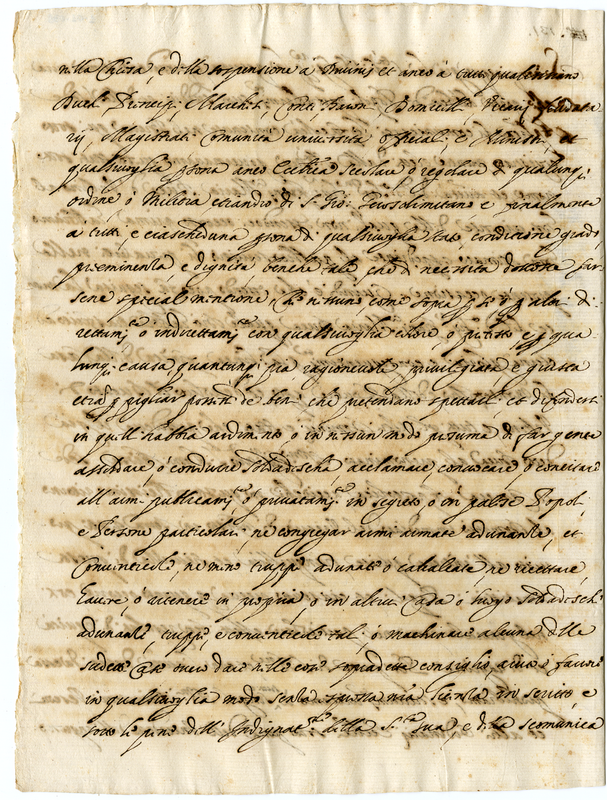 nella Chiesa, e della sospensione a Divinis et anco à tutti qualsivoglino
Duchi, Principi, Marchesi, Conti, Baroni, Domicelli, Vicarij, feudata
rij, Magistrati Comunità università officiali e Ministri, et
qualsivoglia psona anco Ecclica secolare ò regolare di qualunq;
ordine ò Militia etiandio di S. Gio: Gierosolimitano e finalmente
a tutti, e ciascheduna psona di qualsivoglia stato conditione grado
preeminenza, e dignità benche tale che di necessità dovesse far
sene special mentione, che nissuno come sopra p se ò p altri di
rettamte ò indirettamte con qualsivoglia colore ò pretesto e p qua
lunq; causa, quantunq; pia ragionevole privilegiata, e giusta
etia p pigliar possesso de beni che pretendano spettarli, et difenderli
in quelli habbia ardimento ò in nissun modo presuma di far gente
assoldare, ò condurre soldadescha, acclamare, convocare ò concitare
all'armi publicamte ò privatamte in segreto ò in palese Popoli
e Persone particolari, ne congregar armi armate adunanze, et
Conventicole, ne meno truppe adunate ò cavalcate, ne ricettare
favorire ò ritenere in propria, ò in altrui casa ò luogo soldadescha
adunanze, truppe, e conventicole tali, ò machinare alcuna delle
sudette cose overo dare nelle cose sopradette consiglio, aiuto ò favore
in qualsivoglia modo senza espressa nra licenza in scritto, e
sotto le pene dell'Indignatne della Sta Sua, e della scomunica